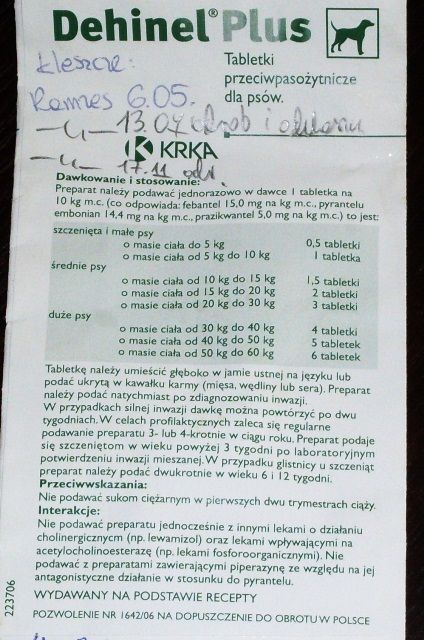 Dehinel® Plus
kleszcze:
Tabletki
przeciwpasożytnicze
dla psów.
6.05.
13.04 i
KRKA
17.11
Dawkowanie i stosowanie:
Preparat należy podawać jednorazowo w dawce 1 tabletka na
10 kg m.c. (co odpowiada: febantel 15,0 mg na kg m.c., pyrantelu
embonian 14,4 mg na kg m.c., prazikwantel 5,0 mg na kg m.c.) to jest:
szczenięta i małe psy
o masie ciała do 5 kg 0,5 tabletki
o masie ciała od 5 kg do 10 kg 1 tabletka
średnie psy
o masie ciała od 10 kg do 15 kg 1,5 tabletki
o masie ciała od 15 kg do 20 kg 2 tabletki
o masie ciała od 20 kg do 30 kg 3 tabletki
duże psy
o masie ciała od 30 kg do 40 kg 4 tabletki
o masie ciała od 40 kg do 50 kg 5 tabletek
o masie ciała od 50 kg do 60 kg 6 tabletek
Tabletkę należy umieścić głęboko w jamie ustnej na języku lub
podać ukrytą w kawałku karmy (mięsa, wędliny lub sera). Preparat
należy podać natychmiast po zdiagnozowaniu inwazji.
W przypadkach silnej inwazji dawkę można powtórzyć po dwu
tygodniach. W celach profilaktycznych zaleca się regularne
podawanie preparatu 3- lub 4-krotnie w ciągu roku. Preparat podaje
się szczeniętom w wieku powyżej 3 tygodni po laboratoryjnym
potwierdzeniu inwazji mieszanej. W przypadku glistnicy u szczeniąt
preparat należy podać dwukrotnie w wieku 6 i 12 tygodni.
Przeciwwskazania:
Nie podawać sukom ciężarnym w pierwszych dwu trymestrach ciąży.
Interakcje:
Nie podawać preparatu jednocześnie z innymi lekami o działaniu
cholinergicznycm (np. lewamizol) oraz lekami wpływającymi na
acetylocholinoesterazę (np. lekami fosforoorganicznymi). Nie
podawać z preparatami zawierającymi piperazynę ze względu na jej
antagonistyczne działanie w stosunku do pyrantelu.
WYDAWANY NA PODSTAWIE RECEPTY
POZWOLENIE NR 1642/06 NA DOPUSZCZENIE DO OBROTU W POLSCE
223706